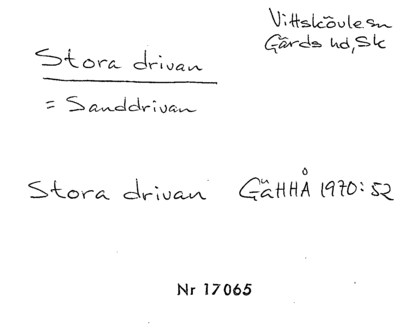 Vittskövle sn
Gärds hd, Sk
Stora drivan
= Sanddrivan
Stora drivan GäHHÅ 1970:52
Nr 17065